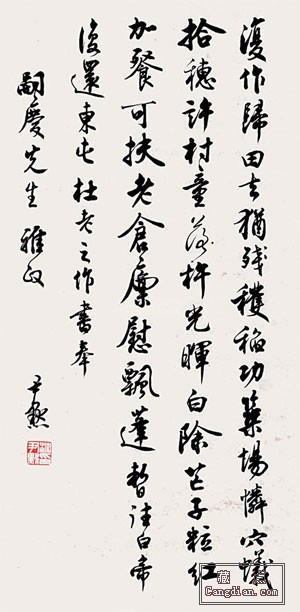 復作歸田去猶殘穫稻功築場憐穴蟻
拾穗許村童落杵光暉白除芒子粒紅
加餐可扶老倉廩慰飄蓬暫往白帝
復還東屯杜老之作書奉
嗣慶先生雅政
尹默
Cangdian.com